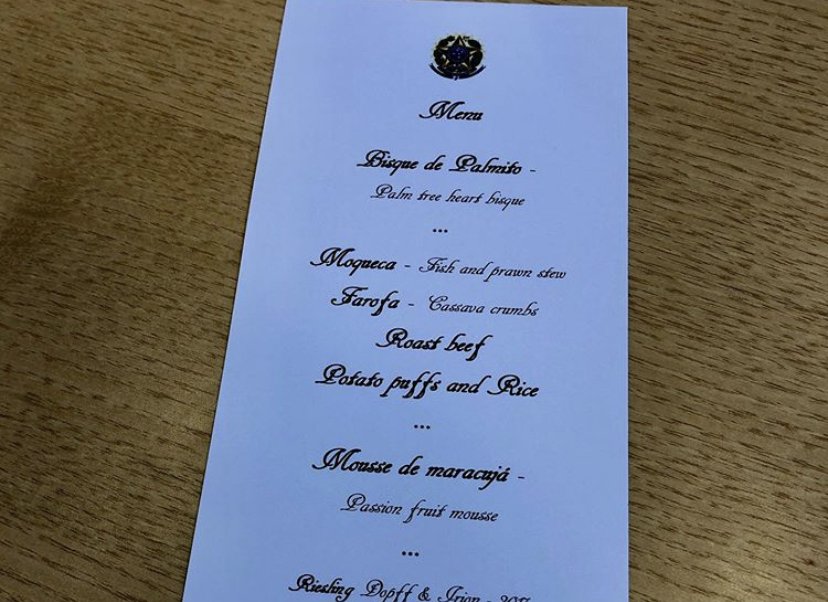 Menu
Bisque de Palmito -
Palm tree heart bisque
...
Moqueca - Fish and prawn stew
Farofa - Cassava crumbs
Roast beef
Potato puffs and Rice
...
Mousse de maracujá -
Passion fruit mousse
...
Riesling Dopff & Irion -